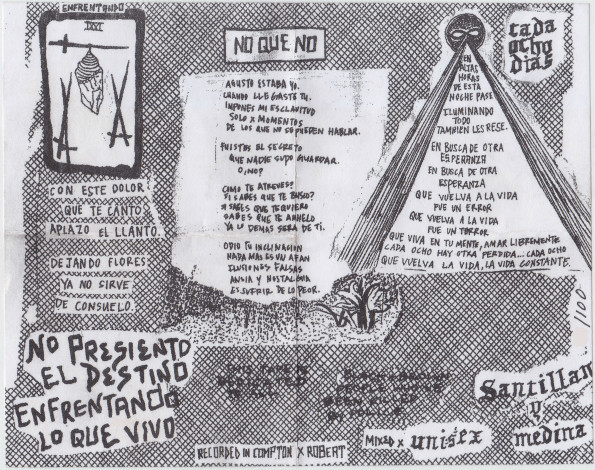 ENFRENTANDO
CON ESTE DOLOR
QUE TE CANTO
APLAZO EL LLANTO.
DEJANDO FLORES
YA NO SIRVE
DE CONSUELO.
NO PRESIENTO
EL DESTINO
ENFRENTANDO
LO QUE VIVO
NO QUE NO
AGUSTO ESTABA YO.
CUANDO LLEGASTE TU.
INPONES MI ESCLAVITUD
SOLO X MOMENTOS
DE LOS QUE NO SE PUEDEN HABLAR.
FUISTES EL SECRETO
QUE NADIE SUPO GUARDAR.
O, NO?
COMO TE ATREVES?
SI SABES QUE TE BUSCO?
SABES QUE TE QUIERO
SABES QUE TE ANHELO
YA LO DEMAS SERA DE TI.
ODIO TU INCLINACION
NADA MAS ES UN AFAN
ILUSIONES FALSAS
ANSIA Y NOSTALGIA
ES SUFRIR DE LO PEOR.
THIS TAPE IS
DEDICATED
TO ALL
BLACK & BROWN
PEOPLE WHO'VE
BEEN KILLED
BY POLICE
RECORDED IN COMPTON X ROBERT
cada
ocho
dias
EN
ALTAS
HORAS
DE ESTA
NOCHE PASE
ILUMINANDO
TODO
TAMBIEN LES RESE.
EN BUSCA DE OTRA
ESPERANZA
EN BUSCA DE OTRA
ESPERANZA
QUE VUELVA A LA VIDA
FUE UN ERROR
QUE VUELVA A LA VIDA
FUE UN TERROR
QUE VIVA EN TU MENTE, AMAR LIBREMENTE
CADA OCHO HAY OTRA PERDIDA... CADA OCHO
QUE VUELVA LA VIDA, LA VIDA CONSTANTE.
/100
MIXED X unisex
Santillan
y
medina